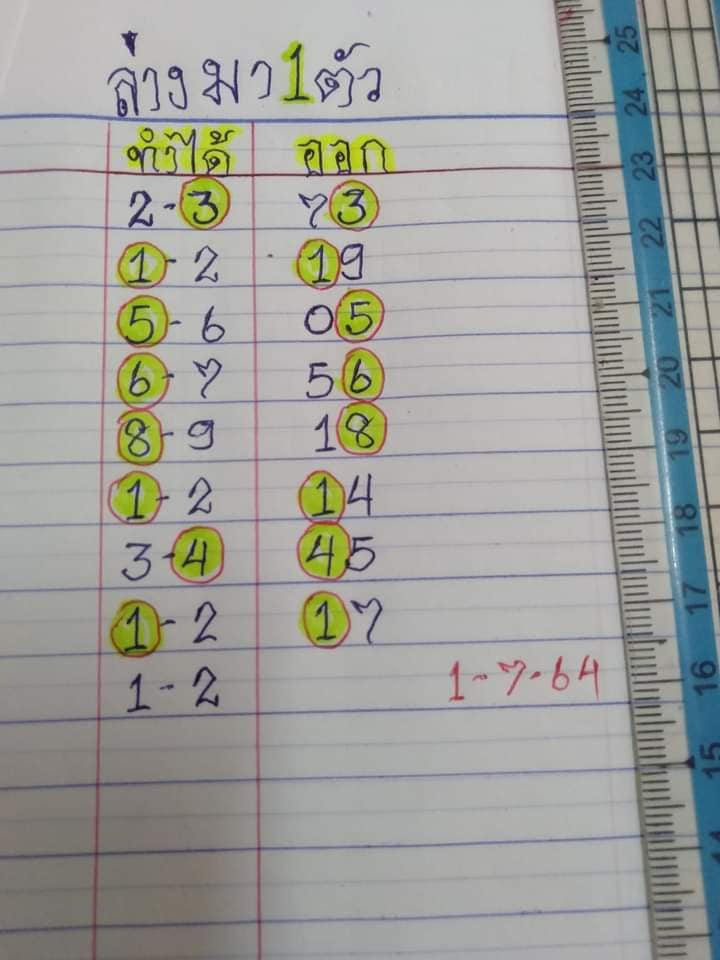 ล่างมา 1 ตัว
ทำได้ ออก
2-3 73
1-2 19
5-6 05
6-7 56
8-9 18
1-2 14
3-4 45
1-2 17
1-2 1-7-64
25
24
23
22
21
20
19
18
17
16
15